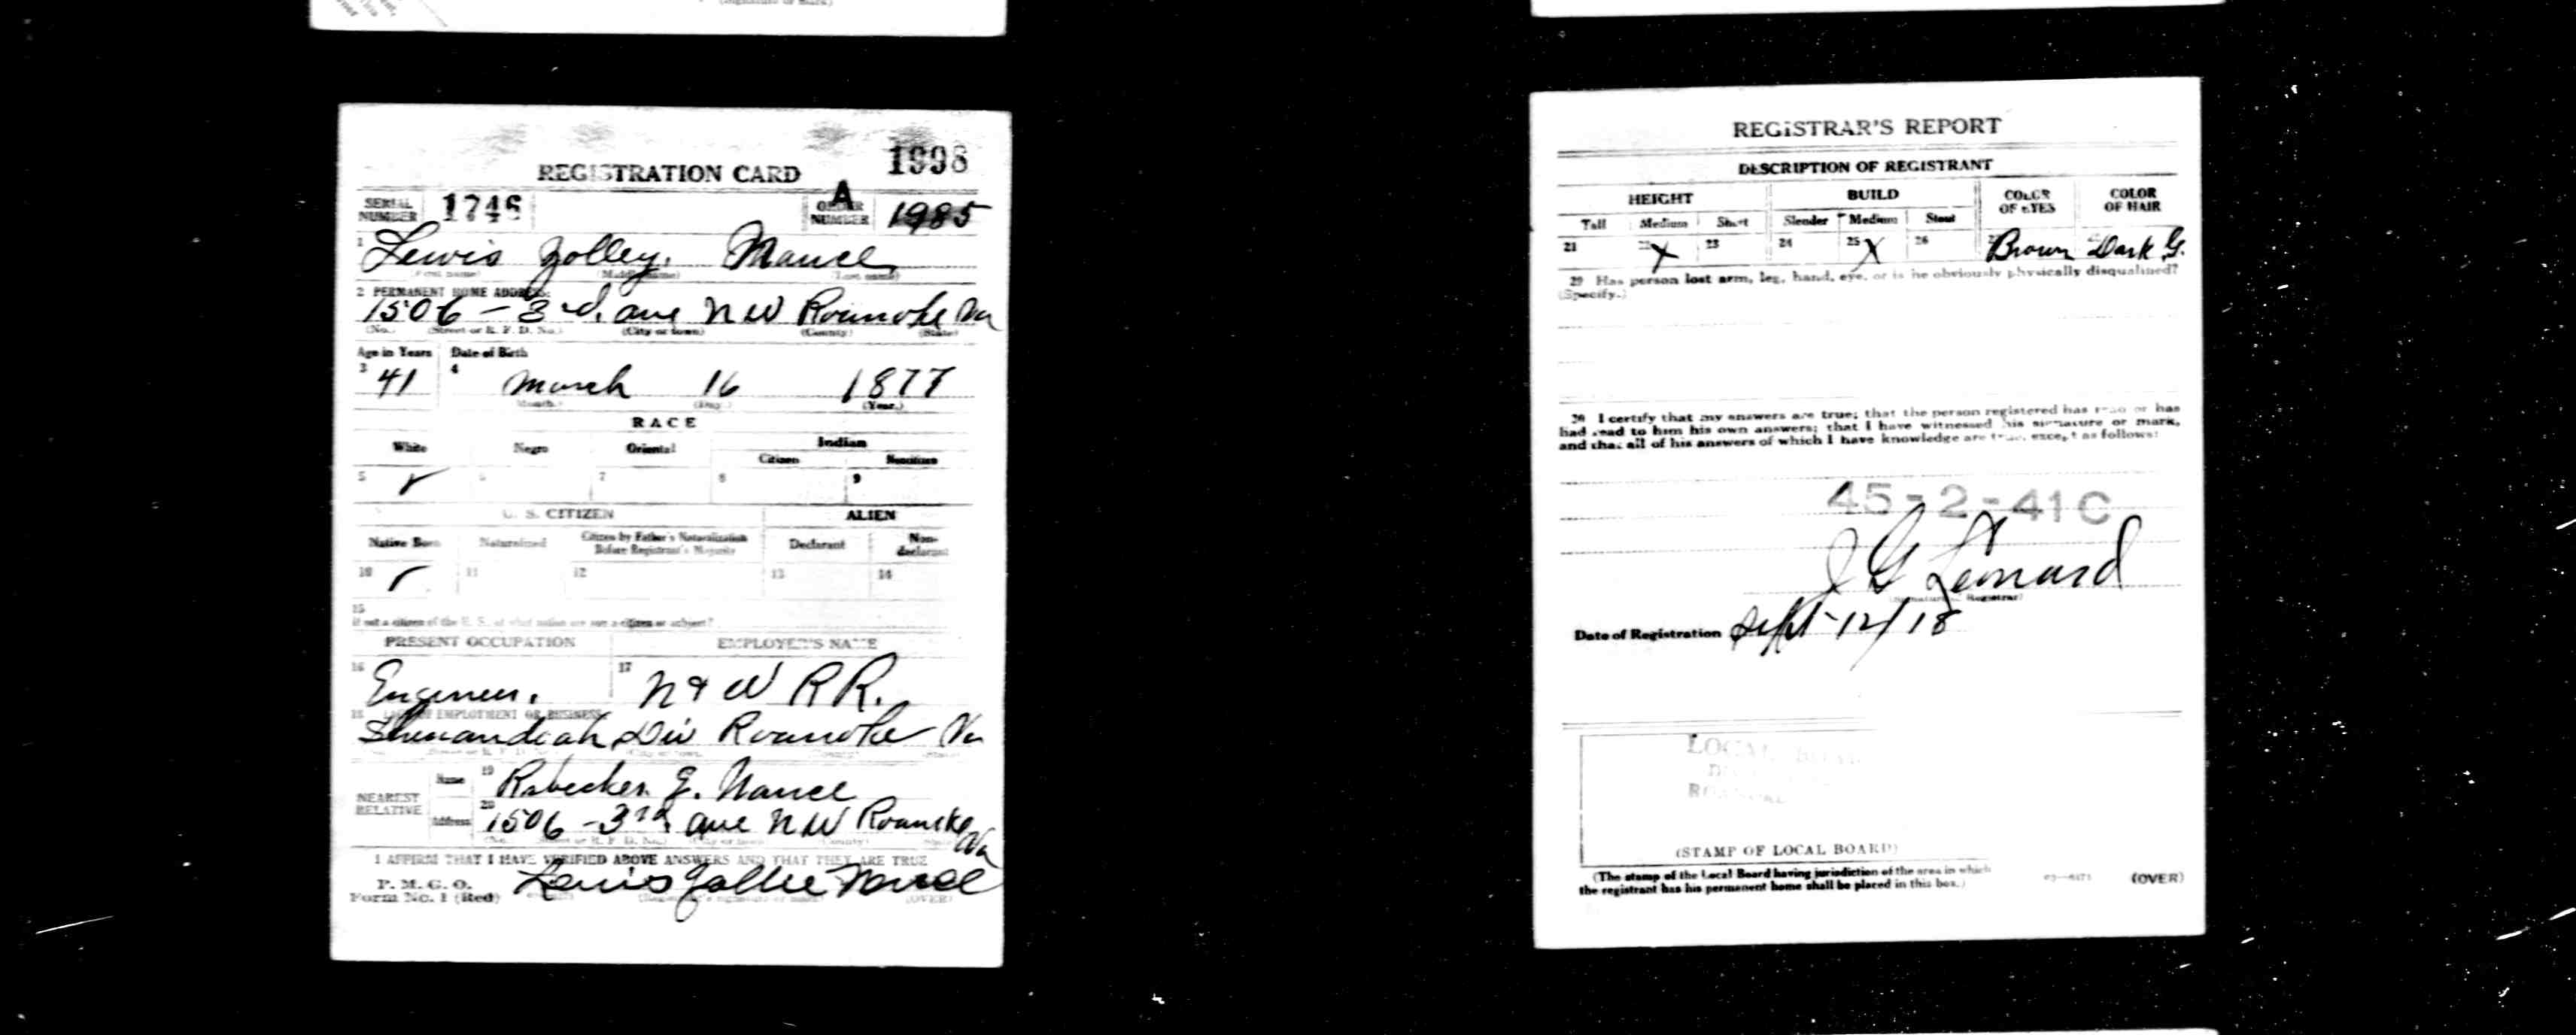 1998
REGISTRATION CARD
SERIAL NUMBER 1746 A ORDER NUMBER 1985
1 Lewis Zolley. Nance
(First name) (Middle name) (Last name)
2 PERMANENT HOME ADDRESS:
1506 - 3rd. ave N W Roanoke Va
(No.) (Street or R. F. D. No.) (City or town) (County) (State)
Age in Years Date of Birth
3 41 4 March 16 1877
(Month.) (Day.) (Year.)
RACE
White Negro Oriental Indian
Citizen Noncitizen
5 ✓ 6 7 8 9
U. S. CITIZEN ALIEN
Native Born Naturalized Citizen by Father's Naturalization Before Registrant's Majority Declarant Non-declarant
10 ✓ 11 12 13 14
15
If not a citizen of the U. S., of what nation are you a citizen or subject?
PRESENT OCCUPATION EMPLOYER'S NAME
16 Engineer. 17 N & W R R.
18 PLACE OF EMPLOYMENT OR BUSINESS:
Shenandoah Div Roanoke Va
NEAREST RELATIVE Name 19 Rebecker E. Nance
Address 20 1506 - 3rd ave N W Roanoke Va
(No.) (Street or R. F. D. No.) (City or town) (County) (State)
I AFFIRM THAT I HAVE VERIFIED ABOVE ANSWERS AND THAT THEY ARE TRUE
P. M. G. O.
Form No. 1 (Red) Lewis Zollie Nance
(Registrant's signature or mark) (OVER)
REGISTRAR'S REPORT
DESCRIPTION OF REGISTRANT
HEIGHT BUILD COLOR OF EYES COLOR OF HAIR
Tall Medium Short Slender Medium Stout
21 22 X 23 24 25 X 26 27 Brown Dark G.
29 Has person lost arm, leg, hand, eye, or is he obviously physically disqualified?
(Specify.)
30 I certify that my answers are true; that the person registered has read or has
had read to him his own answers; that I have witnessed his signature or mark,
and that all of his answers of which I have knowledge are true, except as follows:
45-2-41 C
J G Leonard
(Signature of Registrar)
Date of Registration Sept-12/18
LOCAL BOARD
(STAMP OF LOCAL BOARD)
(The stamp of the Local Board having jurisdiction of the area in which
the registrant has his permanent home shall be placed in this box.)
(OVER)